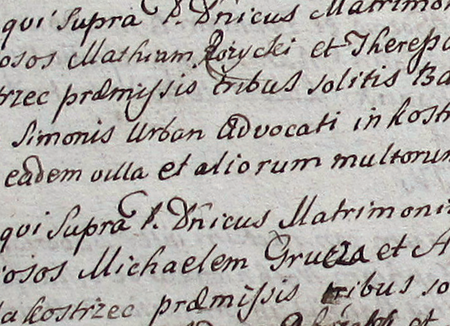 qui supra P. Dnicus Matrimoni
osos Mathiam Rozycki et Theresa
trzec præmissis tribus solitis Ba
Simonis Urban advocati in kostr
eadem villa et aliorum multorum
qui supra P. Dnicus Matrimoni
iosos Michaelem Gruca et A
la kostrzec præmissis tribus so
et